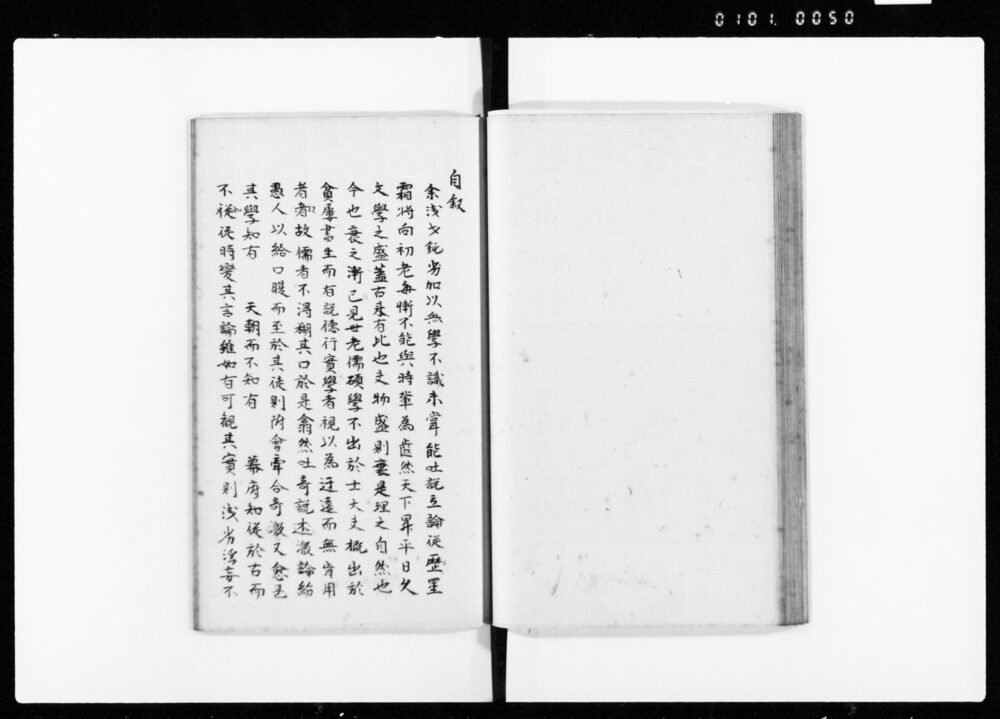 0101.0050
自叙
余浅才鈍劣加以無學不識未嘗能吐説立論従歴星
霜将向初老毎慚不能與時輩為齒然天下昇平日久
文學之盛蓋古未有比也文物盛則衰是理之自然也
今也衰之漸已見世老儒碩學不出於士大夫概出於
貧屢書生而有説徳行實學者視以為迂遠而無肯用
者者故儒者不得糊其口於是翕然吐奇説述激論給
愚人以給口腹而至於其徒則附會牽合奇激又愈甚
其學知有 天朝而不知有 幕府知従於古而
不従従時變其言論雖如有可観其實則浅劣淫妄不